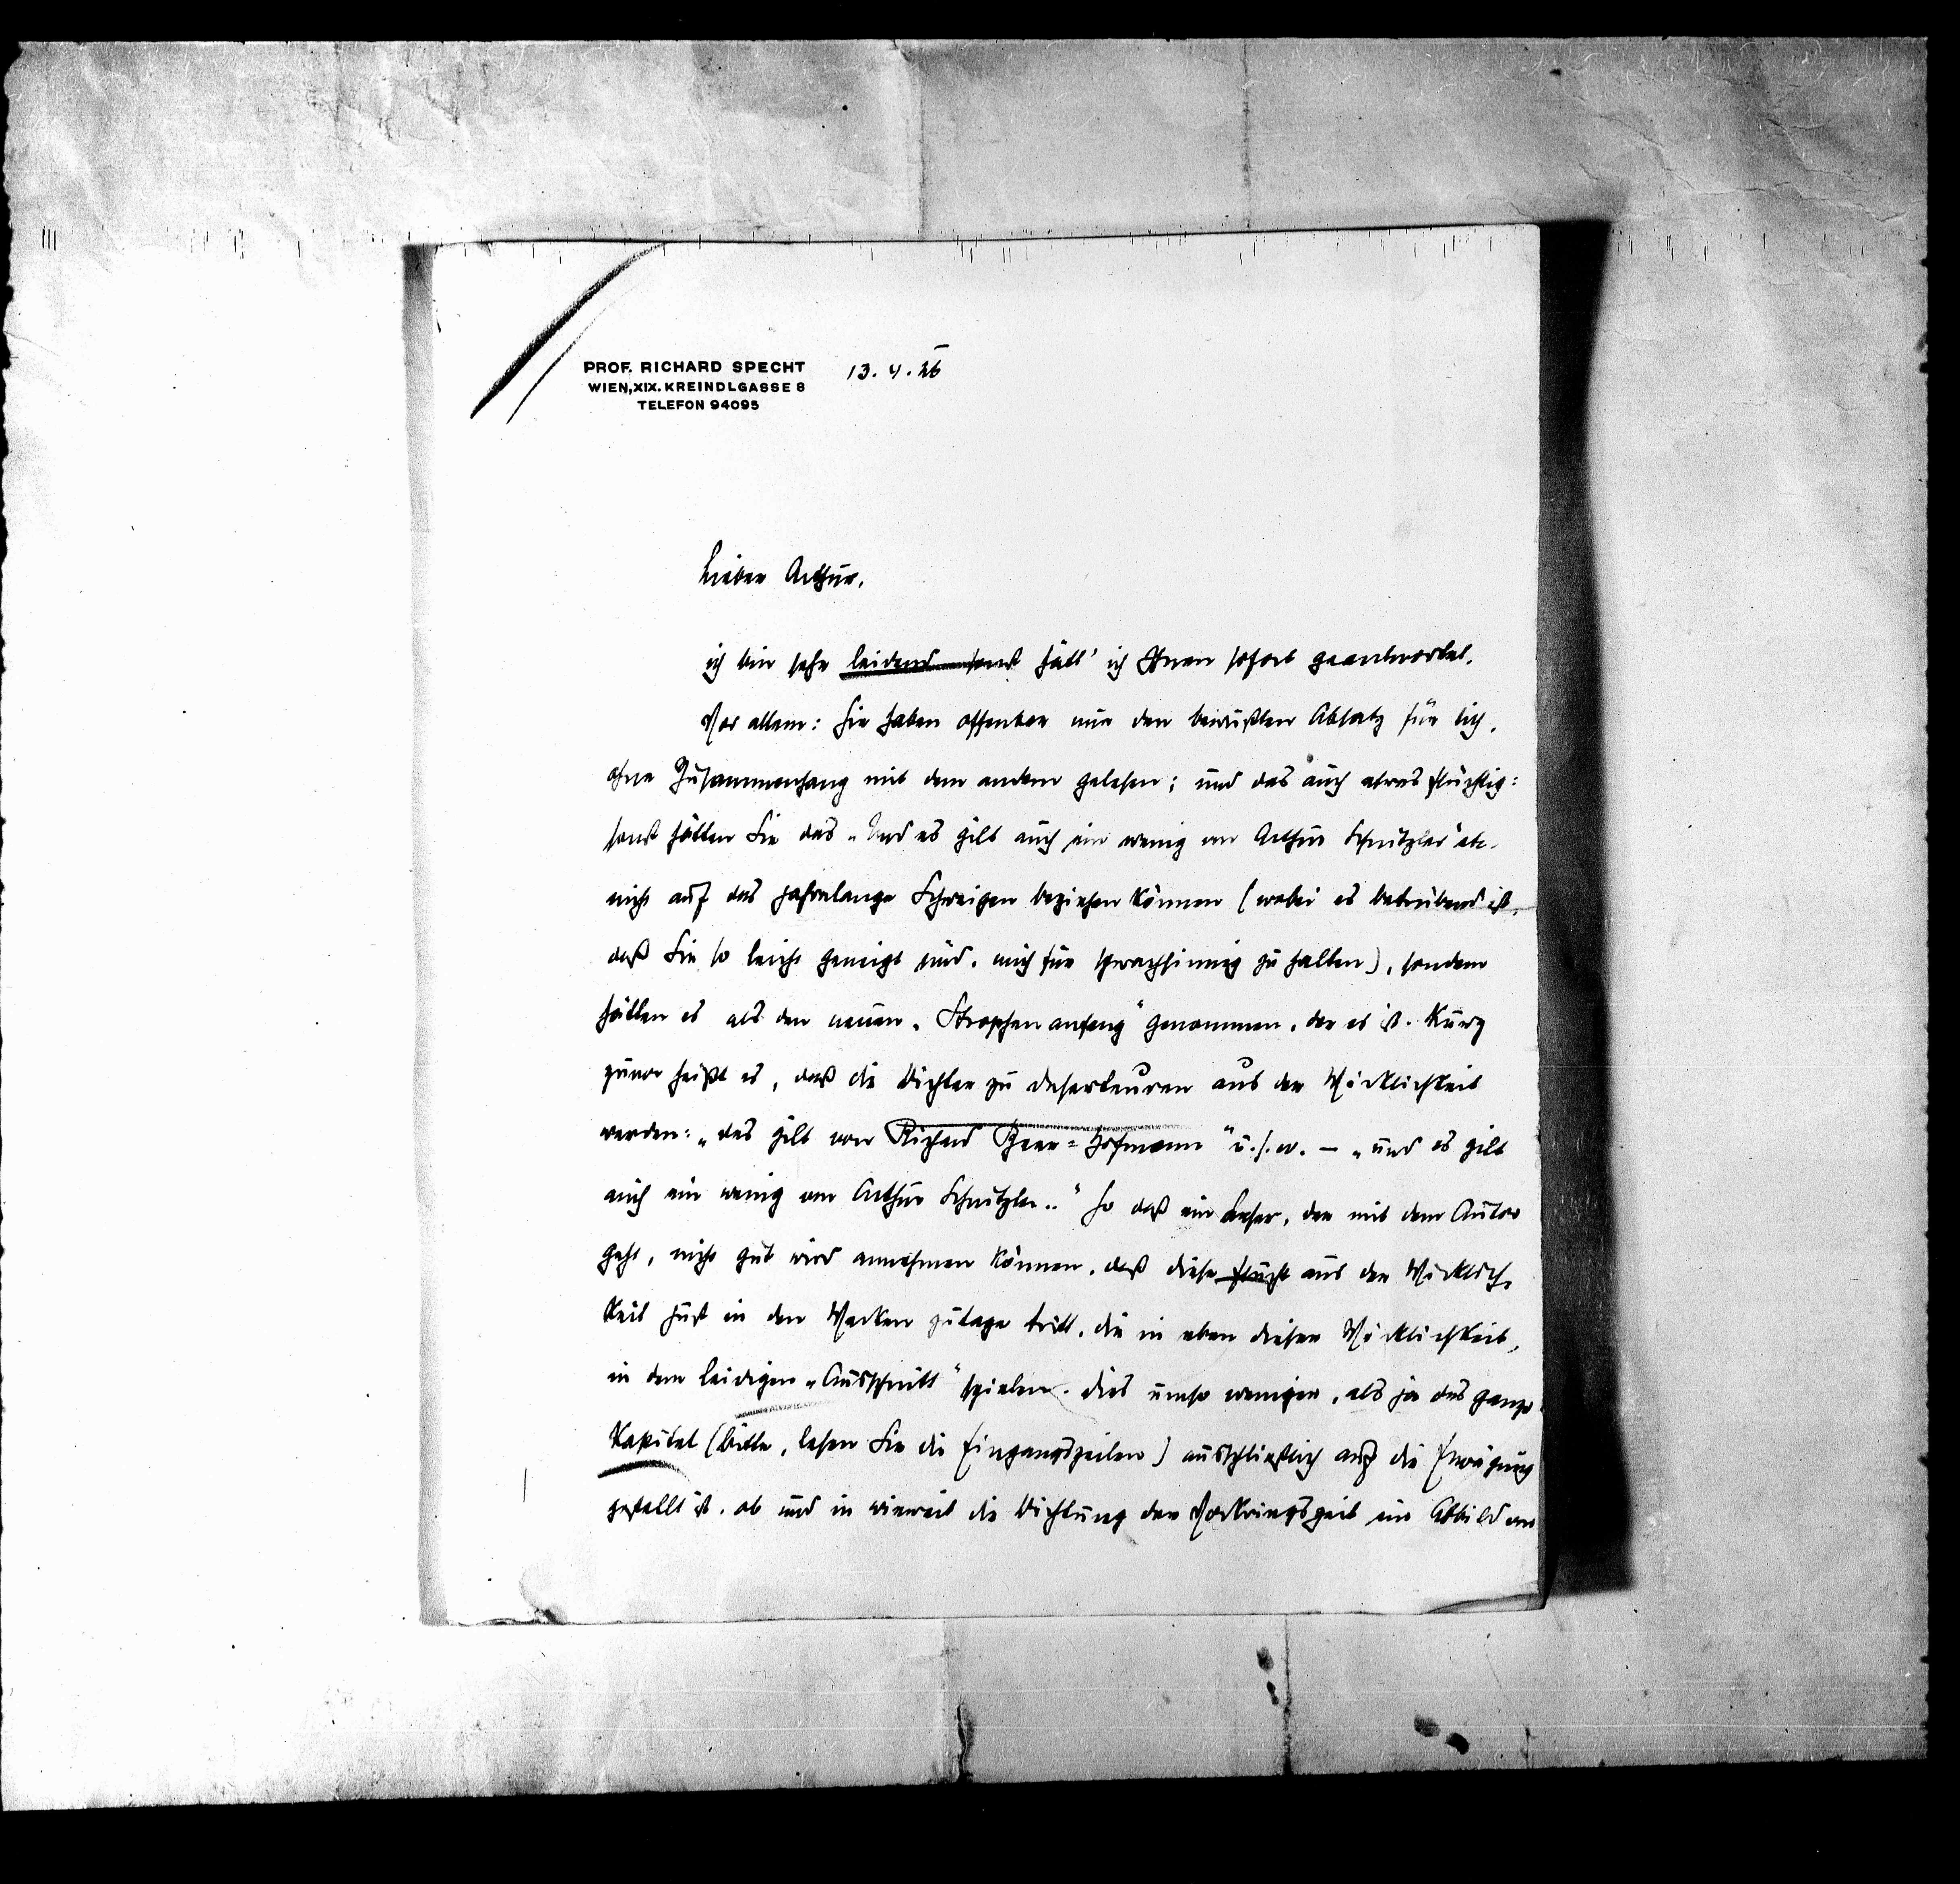 PROF. RICHARD SPECHT 13. 4. 26
WIEN, XIX. KREINDLGASSE 8
TELEFON 94095
Lieber Arthur,
ich bin sehr leidend sonst hätt' ich Ihnen sofort geantwortet.
Vor allem: Sie haben offenbar nur den bewußten Absatz für sich,
ohne Zusammenhang mit dem andern gelesen; und das auch etwas flüchtig:
sonst hätten Sie das „Und es gilt auch ein wenig von Arthur Schnitzler" etc.
nicht auf das jahrelange Schweigen beziehen können (wobei es betrübend ist,
daß Sie so leicht geneigt sind, mich für schwachsinnig zu halten), sondern
hätten es als den neuen „Strophenanfang" genommen, der es ist. Kurz
zuvor heißt es, daß die Dichter zu Deserteuren aus der Wirklichkeit
werden: „das gilt von Richard Beer=Hofmann" u.s.w. — „und es gilt
auch ein wenig von Arthur Schnitzler.." So daß ein Leser, der mit dem Autor
geht, nicht gut wird annehmen können, daß diese Flucht aus der Wirklich-
keit just in den Werken zutage tritt, die in eben dieser Wirklichkeit,
in dem leidigen „Ausschnitt" spielen. Dies umso weniger, als ja das ganze
Kapitel (bitte, lesen Sie die Eingangszeilen) ausschließlich auf die Erwägung
gestellt ist, ob und in wieweit die Dichtung der Vorkriegszeit ein Abbild von